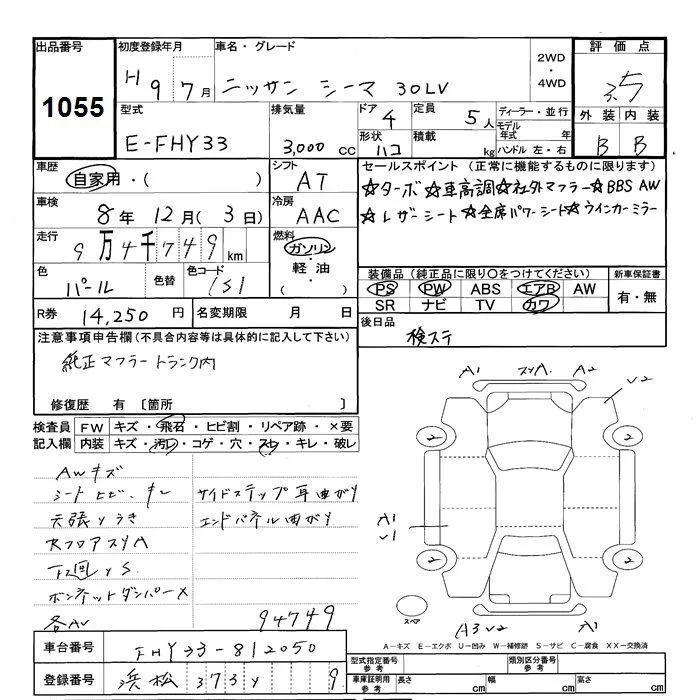 出品番号 初度登録年月 車名・グレード 2WD・4WD 評価点
1055 H9 7月 ニッサン シーマ 30LV 3.5
型式 排気量 ドア 定員 ディーラー・並行 外装 内装
E-FHY33 3,000 cc 4 5人 モデル年式 年 B B
形状 積載 ハンドル 左・右
ハコ kg
車歴 シフト セールスポイント (正常に機能するものに限ります)
自家用・( ) AT ☆ターボ☆車高調☆社外マフラー☆BBS AW
車検 冷房 ☆レザーシート☆全席パワーシート☆ウインカーミラー
8年 12月( 3日) AAC
走行 燃料
9万4千749km ガソリン・軽油・( )
色 色替 色コード 装備品 (純正品に限り○をつけてください) 新車保証書
パール PS PW ABS エアB AW 有・無
SR ナビ TV カワ
R券 14,250 円 名変期限 月 日 後日品
検ステ
注意事項申告欄(不具合内容等は具体的に記入して下さい)
純正マフラートランク内
修復歴 有 〔箇所 〕
検査員記入欄 FW キズ・飛石・ヒビ割・リペア跡・×要
内装 キズ・汚レ・コゲ・穴・スレ・キレ・破レ
AWキズ
シートヒビ、キレ サイドステップ耳曲がり
天張りうき エンドパネル曲がり
下回りS
ボンネットダンパー×
94749
A1 A2
V2
2 2
A1
V1
2 2
スペア
A3 V2 A1
A－キズ E－エクボ U－凹み W－補修跡 S－サビ C－腐食 XX－交換済
車台番号 FHY33-812050
登録番号 浜松 373 9
型式指定番号 参考 類別区分番号 参考
車庫証明用 参考 長さ cm 幅 cm 高さ cm